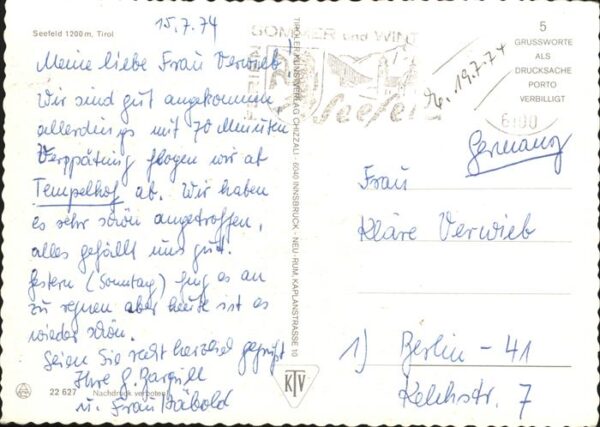 15.7.74
Seefeld 1200 m, Tirol
Meine liebe Frau Verwieb!
Wir sind gut angekommen,
allerdings mit 70 Minuten
Verspätung flogen wir ab
Tempelhof ab. Wir haben
es sehr schön angetroffen,
alles gefällt uns gut.
Gestern (Sonntag) fing es an
zu regnen aber heute ist es
wieder schön.
Seien Sie recht herzlich gegrüßt
Ihre G.
u. Frau
22 627 Nachdruck verboten
TIROLER KUNSTVERLAG CHIZZALI · 6040 INNSBRUCK - NEU-RUM, KAPLANSTRASSE 10
KTV
SOMMER und WINT
Seefel
19.7.74
6100
5
GRUSSWORTE
ALS
DRUCKSACHE
PORTO
VERBILLIGT
Germany
Frau
Kläre Verwieb
1) Berlin - 41
Kelchstr. 7